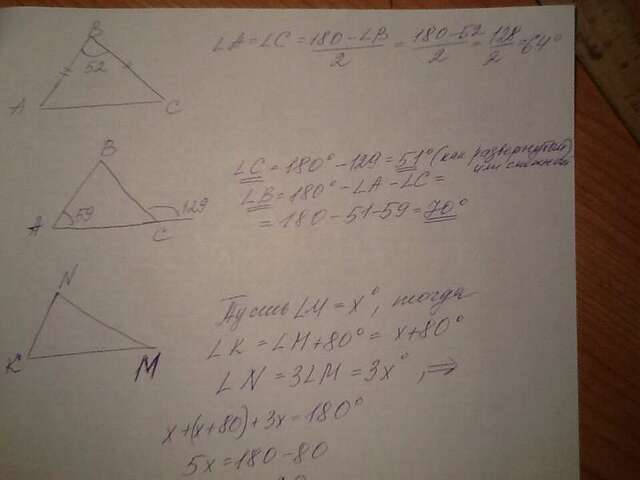 B
52
A
C
∠A = ∠C = (180 - ∠B)/2 = (180 - 52)/2 = 128/2 = 64°
B
A
59
C
129
∠C = 180° - 129 = 51° (как развернутый)
или смежные
∠B = 180° - ∠A - ∠C =
= 180 - 51 - 59 = 70°
N
K
M
Пусть ∠M = x°, тогда
∠K = ∠M + 80° = x + 80°
∠N = 3∠M = 3x°, ⇒
x + (x + 80) + 3x = 180°
5x = 180 - 80